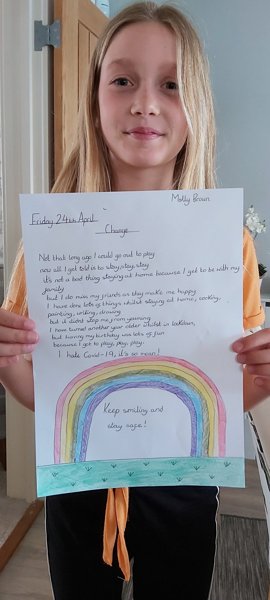 Molly Brown
Friday 24th April
Change
Not that long ago I could go out to play
now all I get told is to stay, stay, stay
it's not a bad thing staying at home because I get to be with my
family
but I do miss my friends as they make me happy.
I have done lots of things whilst staying at home, cooking,
painting, writing, drawing
but it didn't stop me from yawning
I have turned another year older whilst in lockdown,
but having my birthday was lots of fun
because I got to play, play, play.
I hate Covid-19, it's so mean!
Keep smiling and
stay safe!